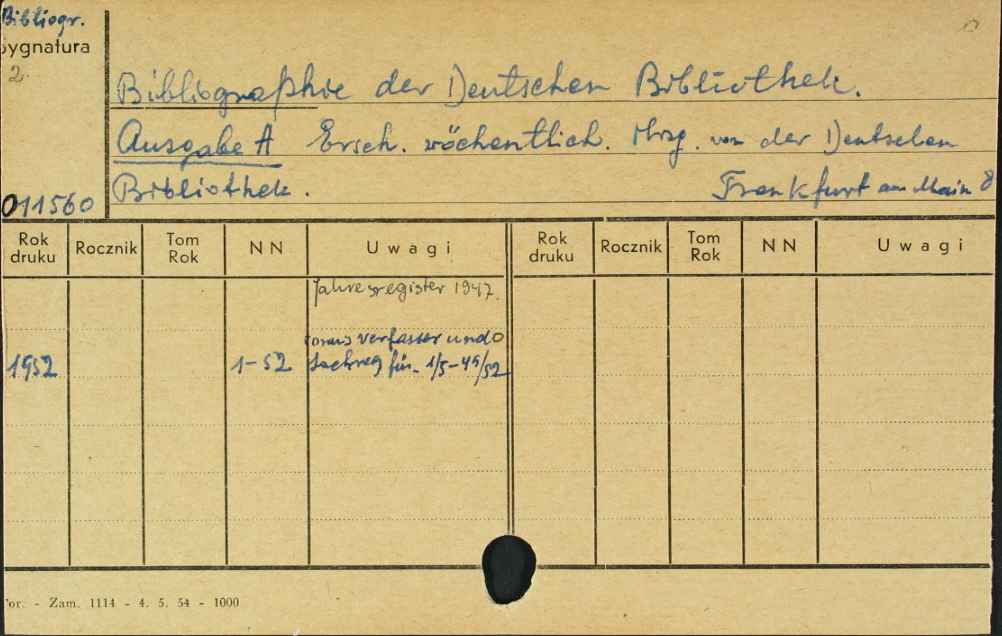 Bibliogr.
Sygnatura
2.
Bibliographie der Deutschen Bibliothek.
Ausgabe A Ersch. wöchentlich. Hrsg. von der Deutschen
Bibliothek. Frankfurt am Main 8
011560
Rok druku Rocznik Tom Rok NN Uwagi Rok druku Rocznik Tom Rok NN Uwagi
Jahresregister 1947.
verfasser und
1952 1-52 Sachreg für. 1/5-49/52
or. - Zam. 1114 - 4. 5. 54 - 1000